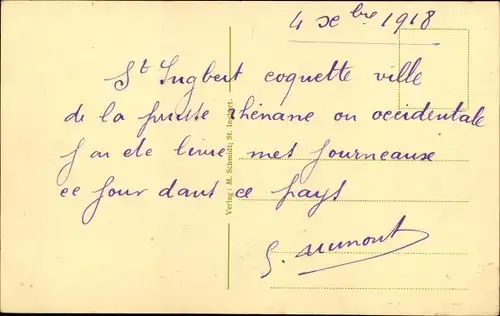 4 Xbre 1918
St Ingbert coquette ville
de la prusse rhénane ou occidentale
J'ai été livré mes journeaux
ce jour dans ce pays
G. Aumont
Verlag: M. Schmidt; St. Ingbert.